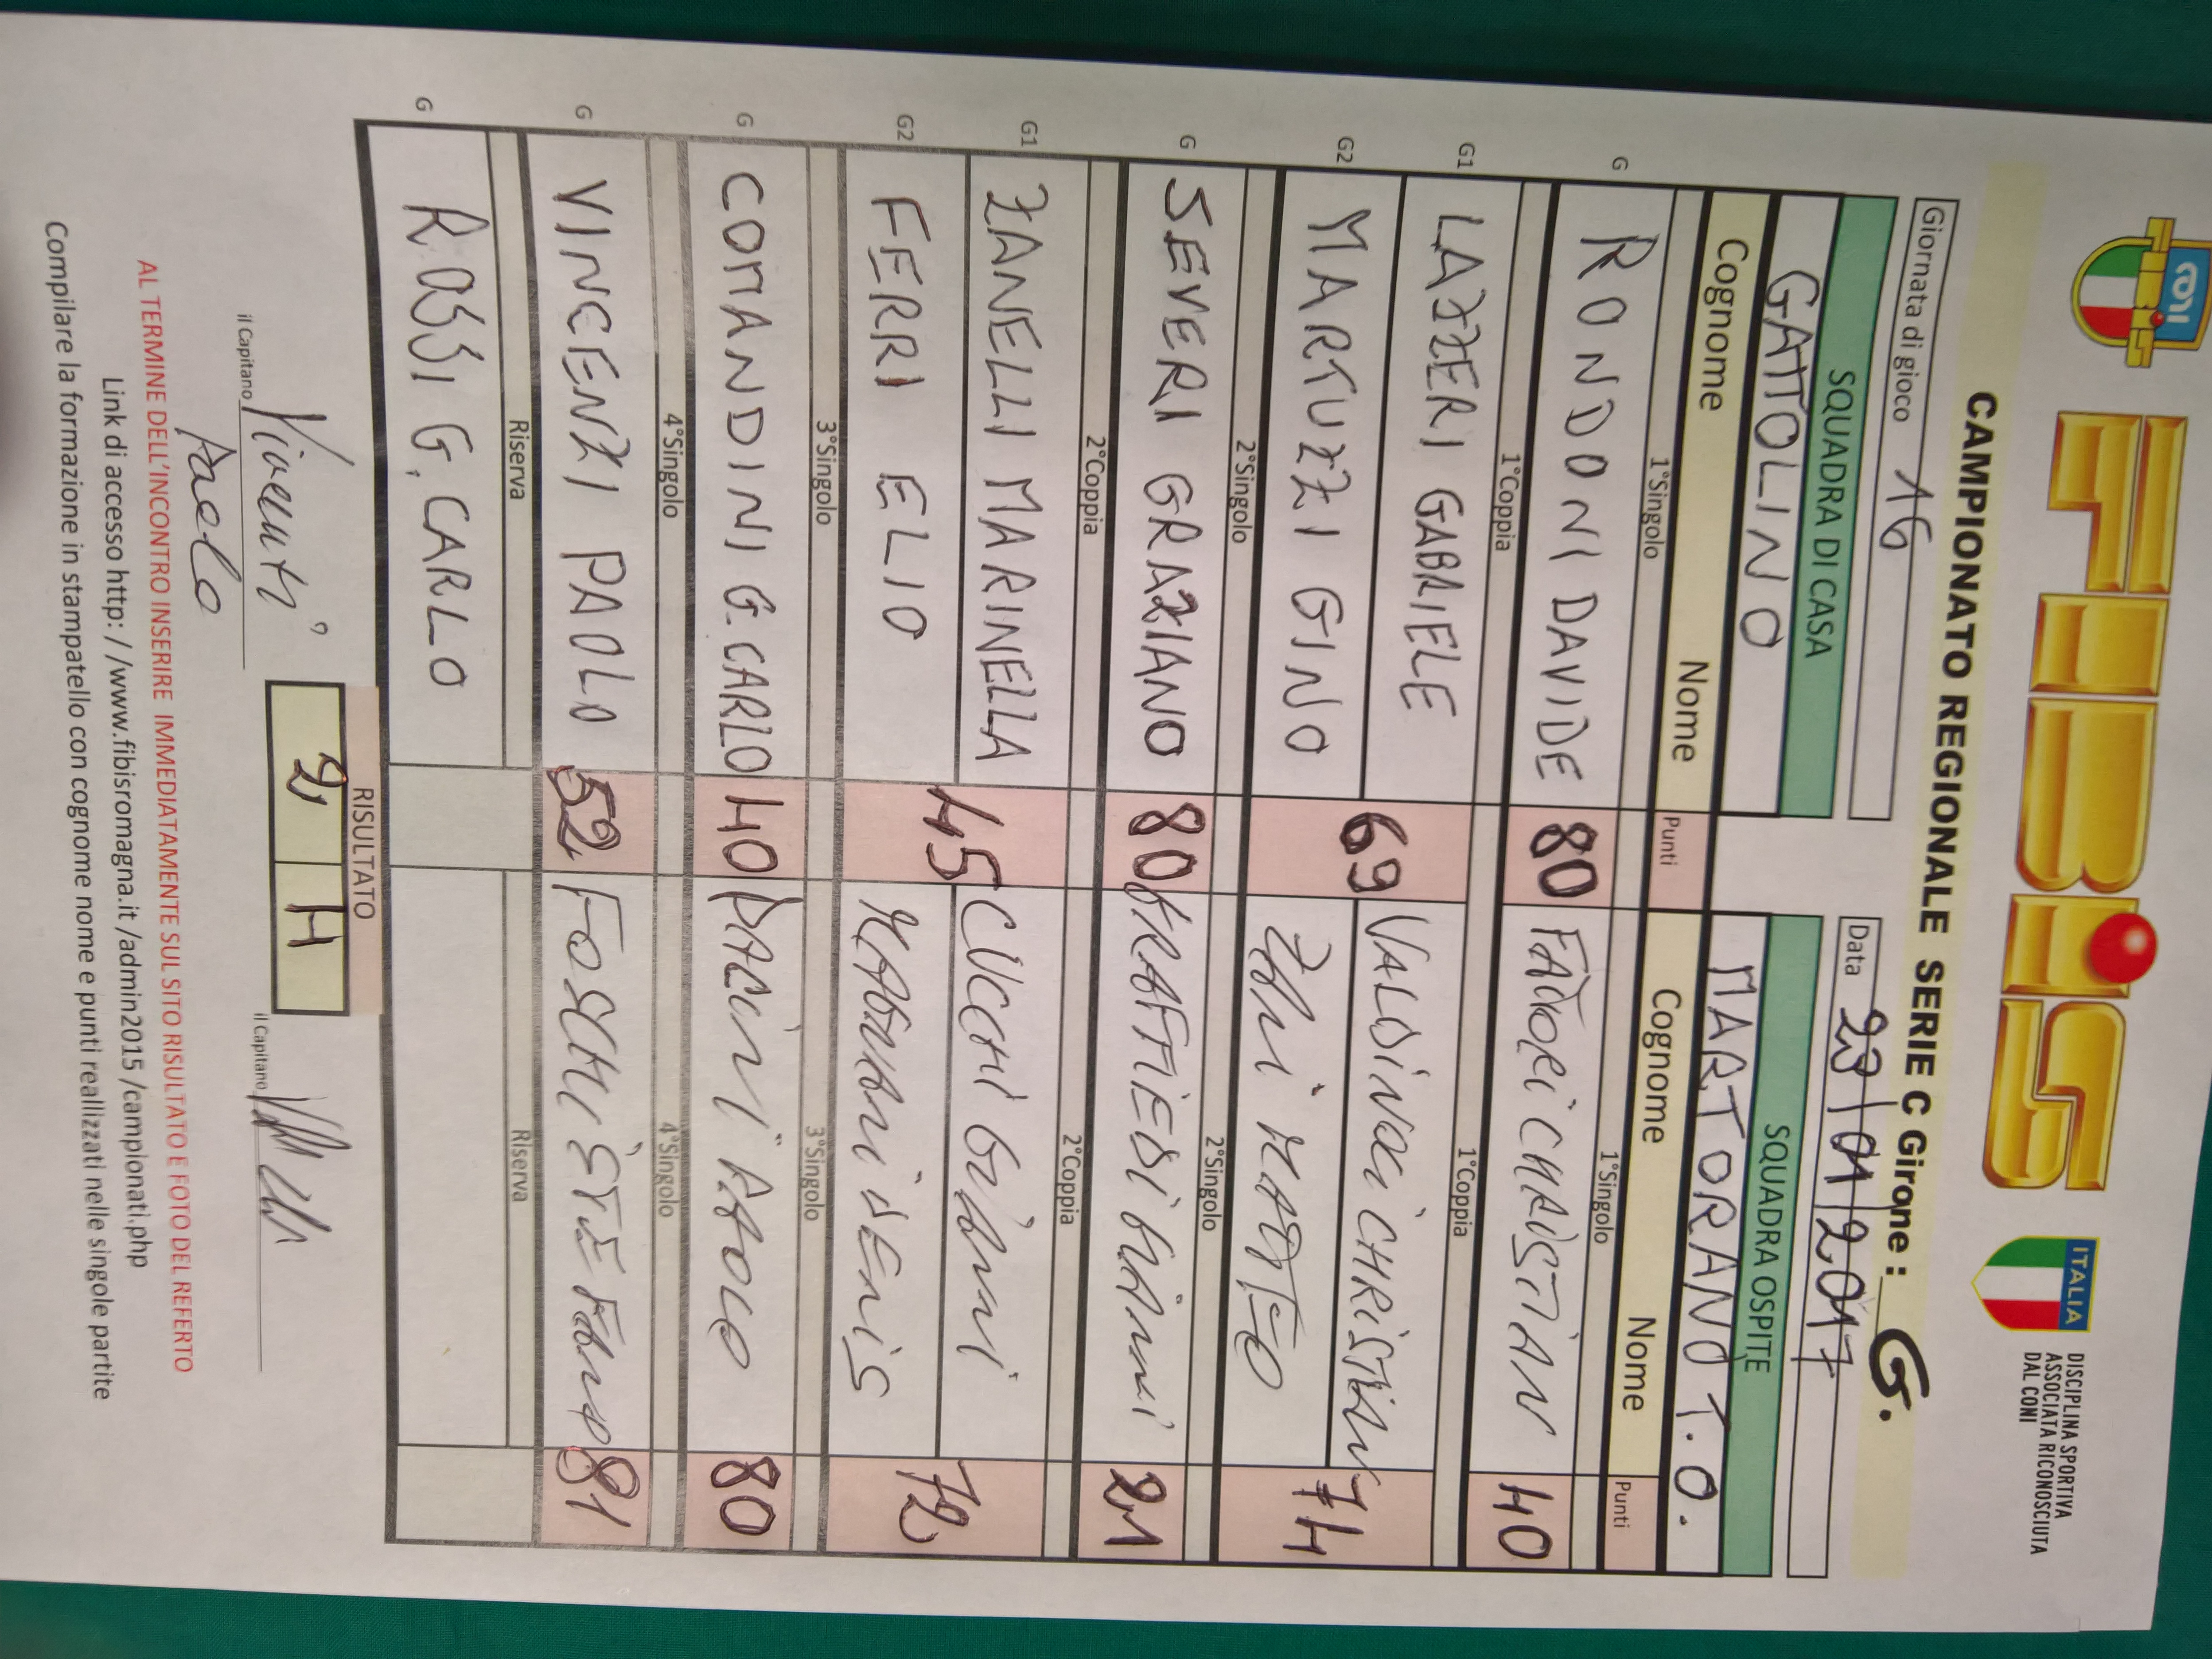 CONI
FIBiS
ITALIA
DISCIPLINA SPORTIVA
ASSOCIATA RICONOSCIUTA
DAL CONI
CAMPIONATO REGIONALE SERIE C Girone : G.
Giornata di gioco 16
Data 23/01/2017
SQUADRA DI CASA
SQUADRA OSPITE
GATTOLINO
MARTORANO T.O.
Cognome Nome Punti
Cognome Nome Punti
1°Singolo
1°Singolo
G RONDONI DAVIDE 80
FADORI CHRISTIAN 40
1°Coppia
1°Coppia
G1 LAZZERI GABRIELE
VALDINOCI CHRISTIAN
69
74
G2 MARTUZZI GINO
ZANI MATTEO
2°Singolo
2°Singolo
G SEVERI GRAZIANO 80
GRAFFIEDI GIANNI 21
2°Coppia
2°Coppia
G1 ZANELLI MARINELLA
CUCCHI GIANNI
45
72
G2 FERRI ELIO
MAGNANI DENIS
3°Singolo
3°Singolo
G COMANDINI G.CARLO 40
PACINI ROCCO 80
4°Singolo
4°Singolo
G VINCENZI PAOLO 52
FOSCHI STEFANO 81
Riserva
Riserva
G ROSSI G.CARLO
RISULTATO
2 4
il Capitano Vincenzi Paolo
il Capitano
AL TERMINE DELL'INCONTRO INSERIRE IMMEDIATAMENTE SUL SITO RISULTATO E FOTO DEL REFERTO
Link di accesso http: / /www.fibisromagna.it /admin2015 /campionati.php
Compilare la formazione in stampatello con cognome nome e punti reallizzati nelle singole partite